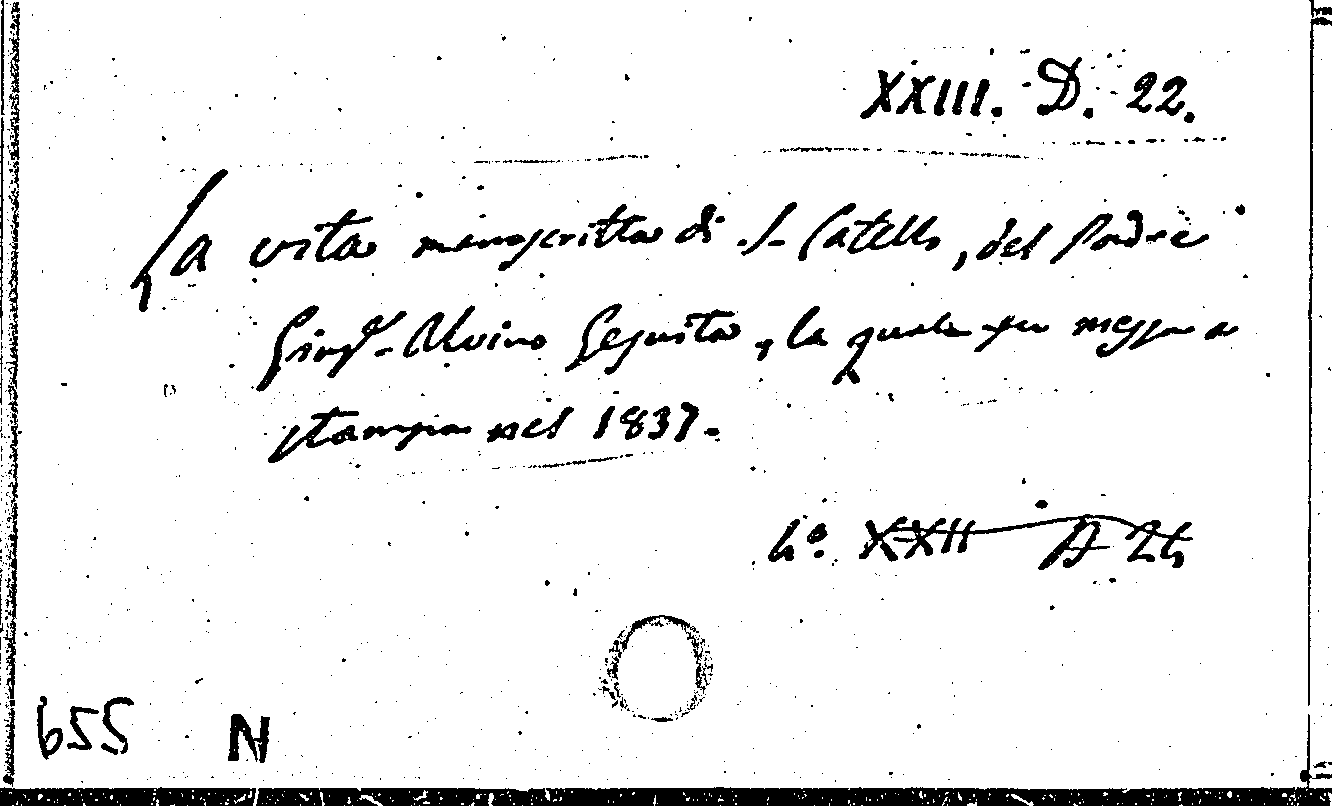 XXIII. D. 22.
La vita manoscritta di S. Catello, del Padre
Giuse. Alvino Gesuita, la quale fu messa a
stampa nel 1837.
4°. XXII A 24
655 N